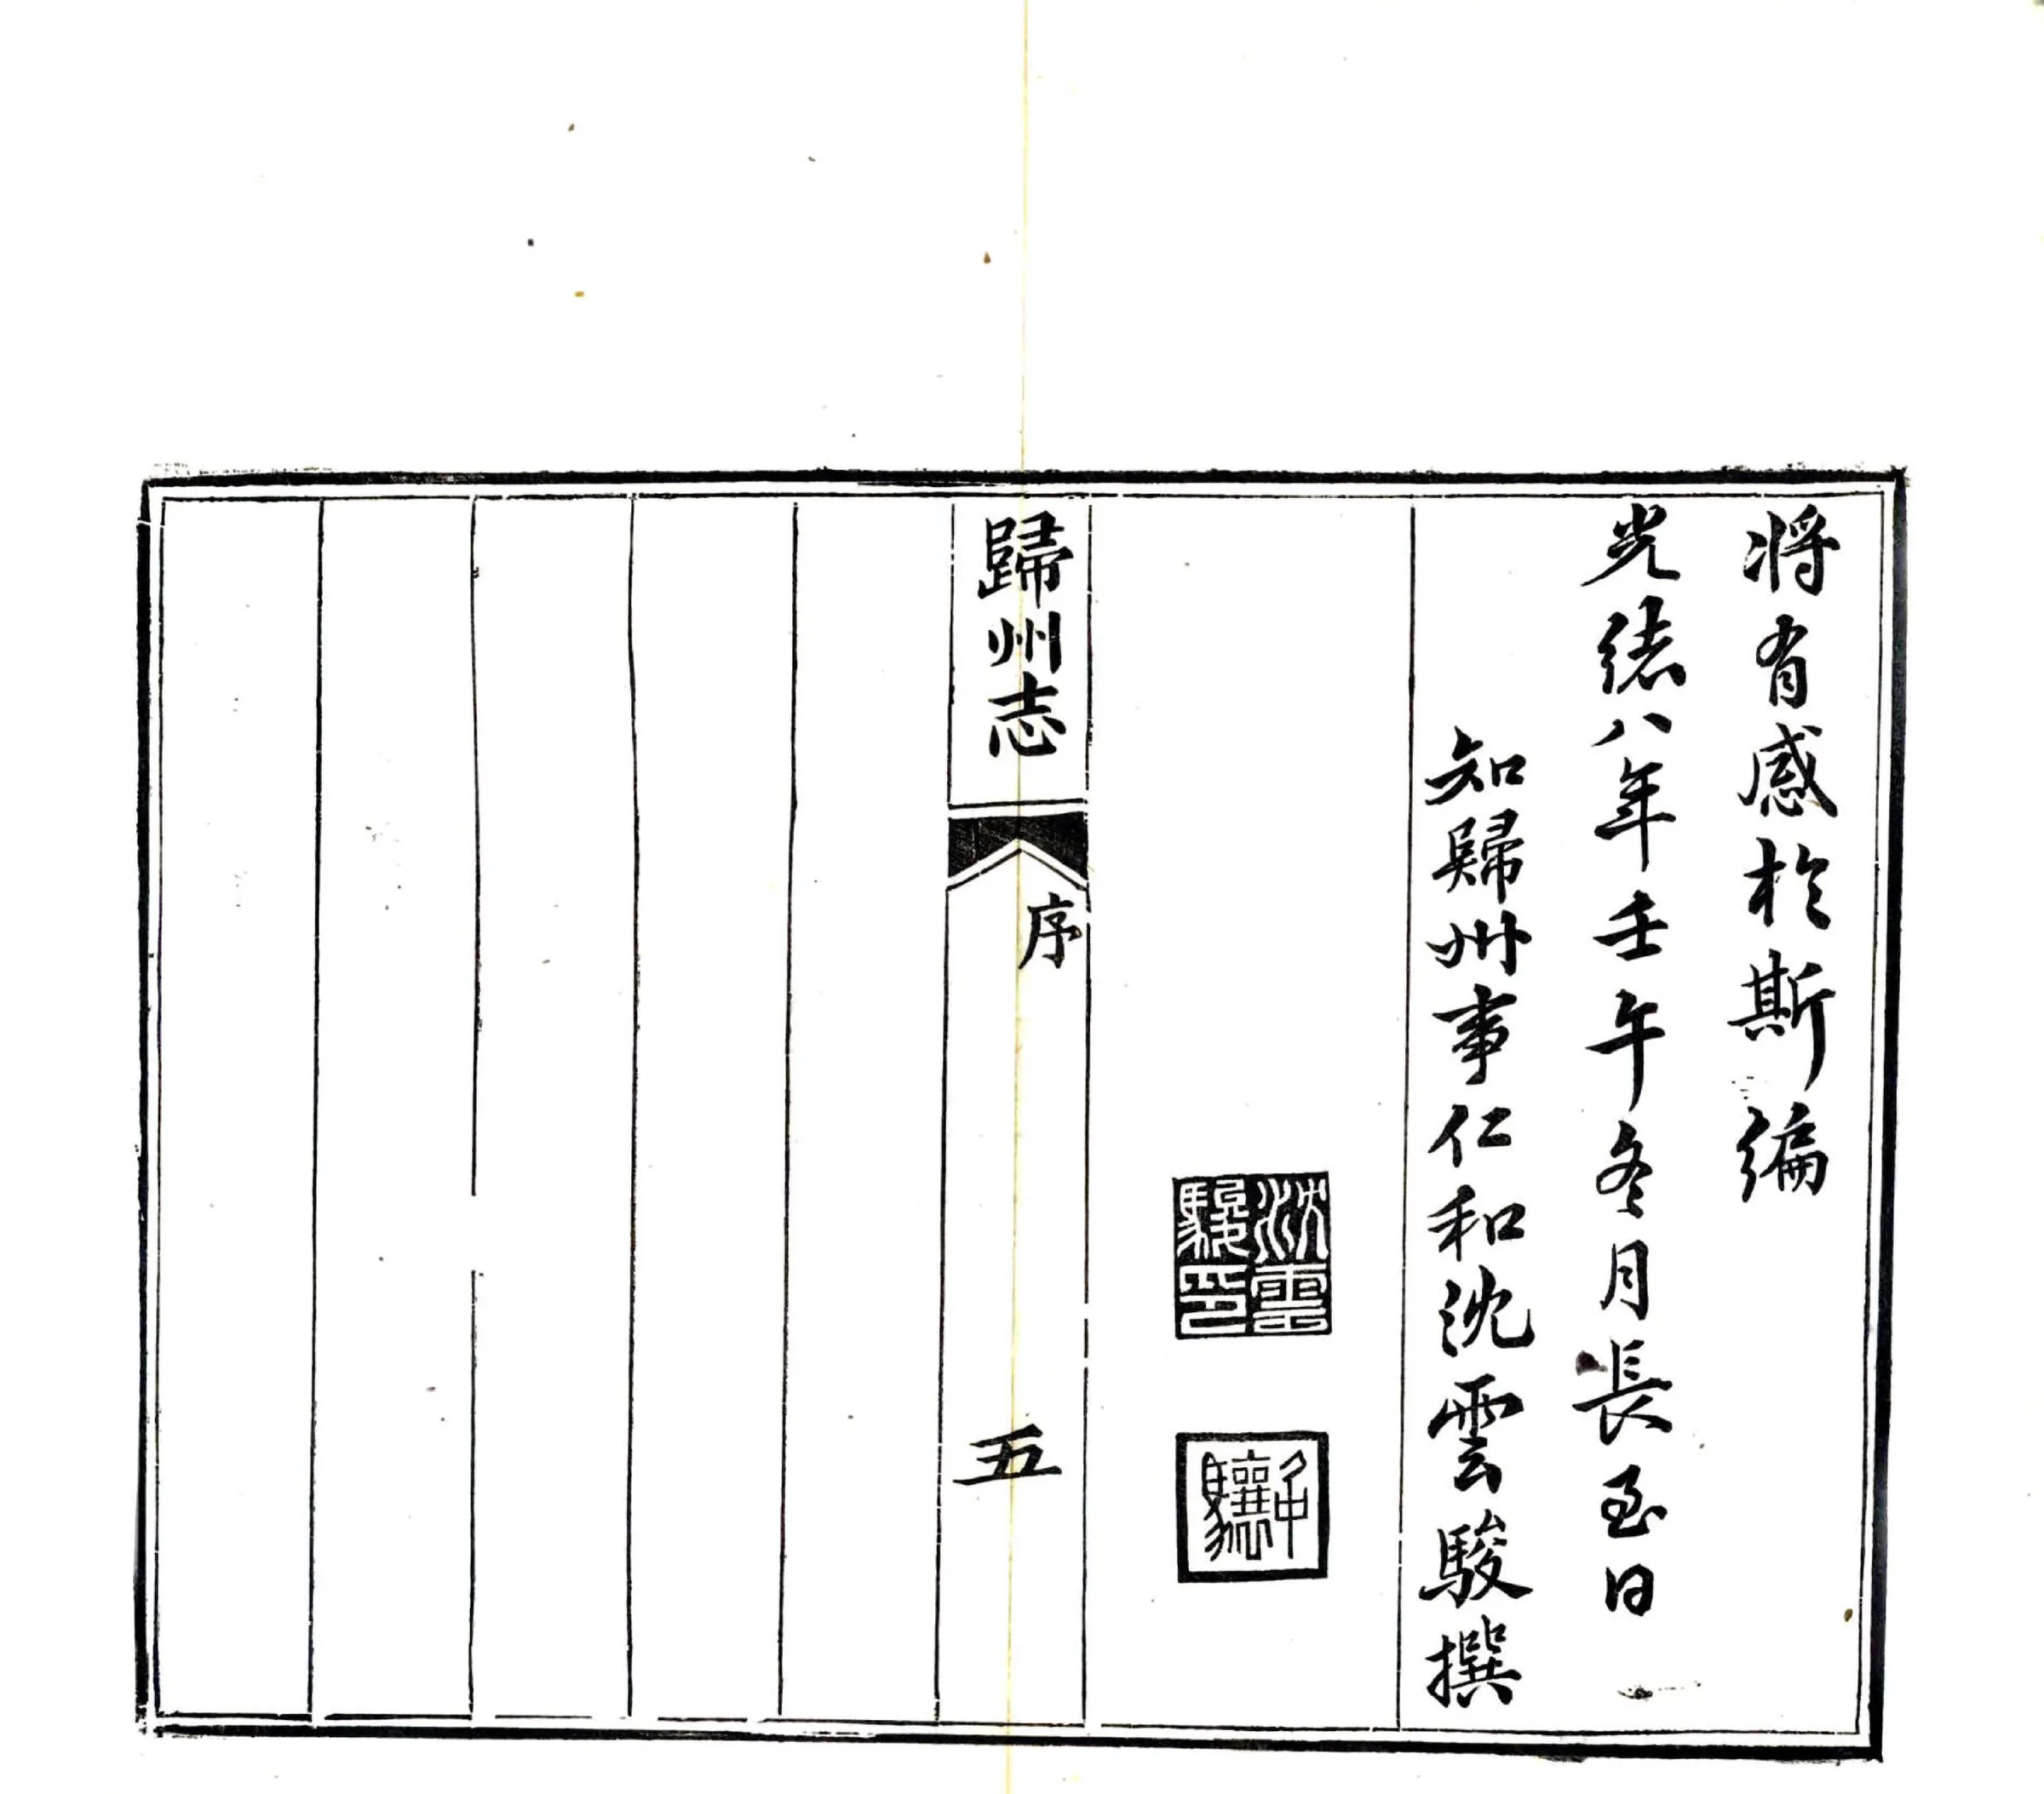 将有感於斯編
光緒八年壬午冬月長至日
知歸州事仁和沈雲駿撰
沈雲駿印
歸州志
序
五